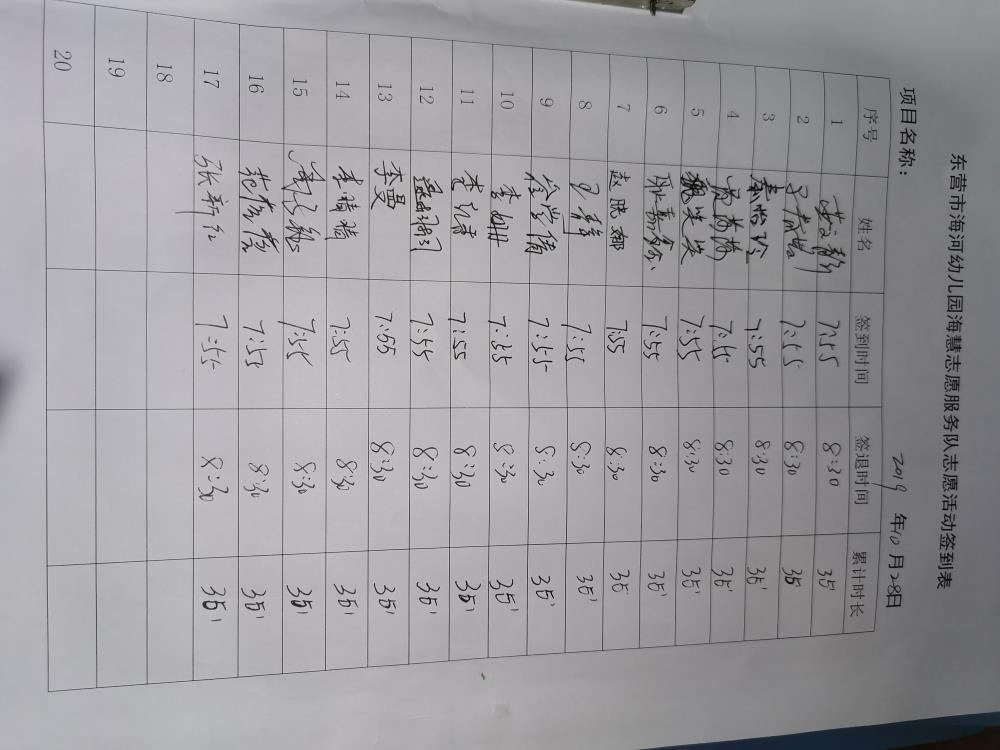 东营市海河幼儿园海慧志愿服务队志愿活动签到表
项目名称： 2019 年 10 月 28 日
序号 姓名 签到时间 签退时间 累计时长
1 7:55 8:30 35'
2 7:55 8:30 35'
3 秦怡玲 7:55 8:30 35'
4 7:55 8:30 35'
5 魏笑笑 7:55 8:30 35'
6 7:55 8:30 35'
7 赵晓娜 7:55 8:30 35'
8 7:55 8:30 35'
9 徐堂倩 7:55 8:30 35'
10 李姗 7:55 8:30 35'
11 7:55 8:30 35'
12 7:55 8:30 35'
13 李曼 7:55 8:30 35'
14 李晴晴 7:55 8:30 35'
15 7:55 8:30 35'
16 7:55 8:30 35'
17 张新红 7:55 8:30 35'
18
19
20